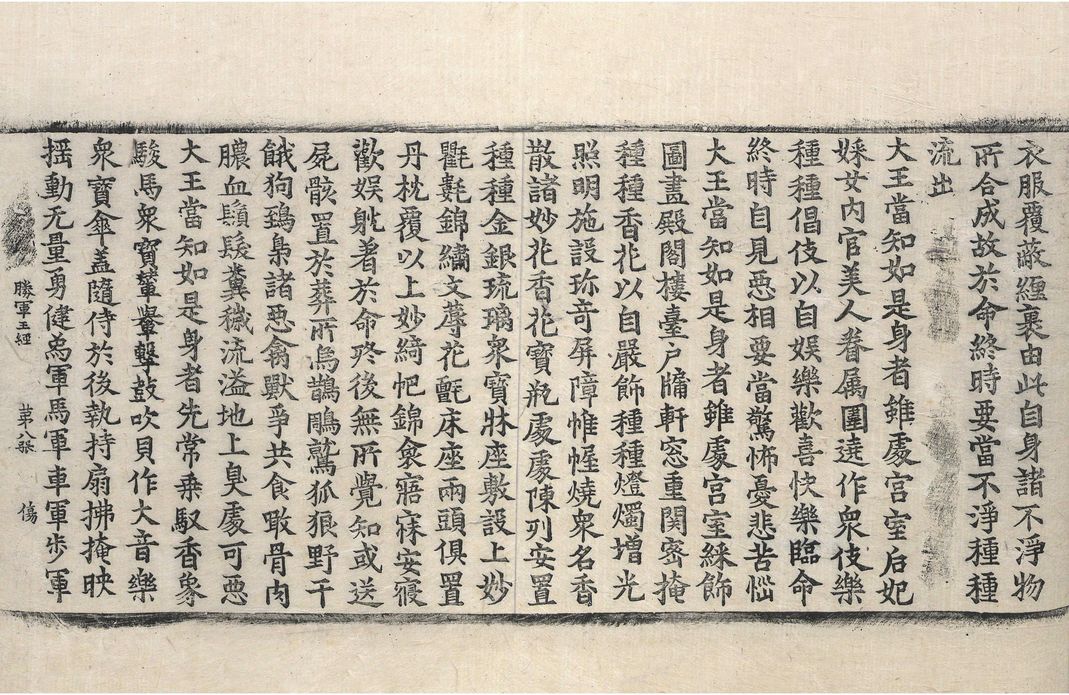 衣服覆蔽纏裹由此自身諸不淨物
所合成故於命終時要當不淨種種
流出
大王當知如是身者雖處宮室后妃
婇女內官美人眷属圍遶作衆伎樂
種種倡伎以自娱樂歡喜快樂臨命
終時自見惡相要當驚怖憂悲苦惱
大王當知如是身者雖處宮室綵飾
圖畫殿閣樓臺户牖軒窓重関密掩
種種香花以自嚴飾種種燈燭增光
照明施設珎奇屏障帷幄燒衆名香
散諸妙花香花寳瓶處處陳列安置
種種金銀琉璃衆寳牀座敷設上妙
氍毹錦繡文蓐花氈床座兩頭俱置
丹枕覆以上妙綺帊錦衾寤寐安寢
歡娱躭著於命終後無所覺知或送
屍骸置於葬所烏鵲鵰鷲狐狼野干
餓狗鵄梟諸惡禽獸爭共食噉骨肉
膿血鬚髮糞穢流溢地上臭處可惡
大王當知如是身者先常乗馭香象
駿馬衆寳輦轝擊鼓吹貝作大音樂
衆寳傘盖隨侍於後執持扇拂掩映
揺動无量勇健為軍馬軍車軍步軍
勝軍王經 苐八張 傷